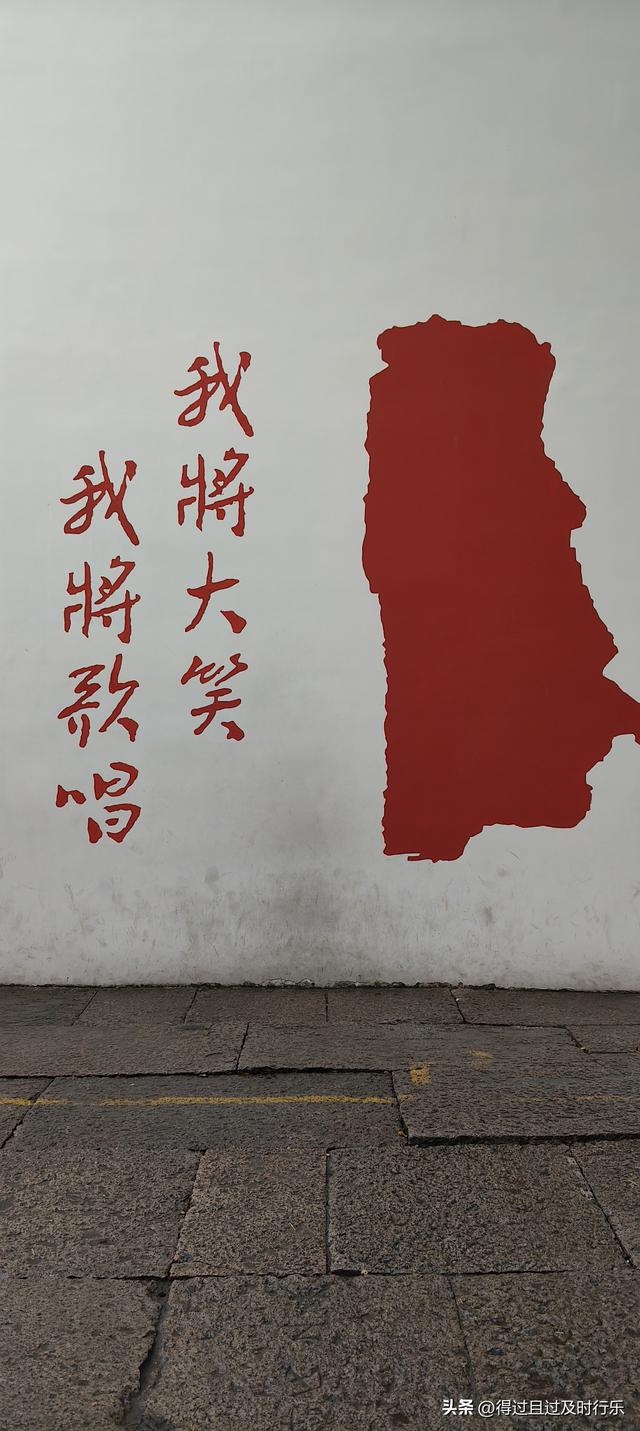 我將大笑
我將歌唱
头条 @得过且过及时行乐